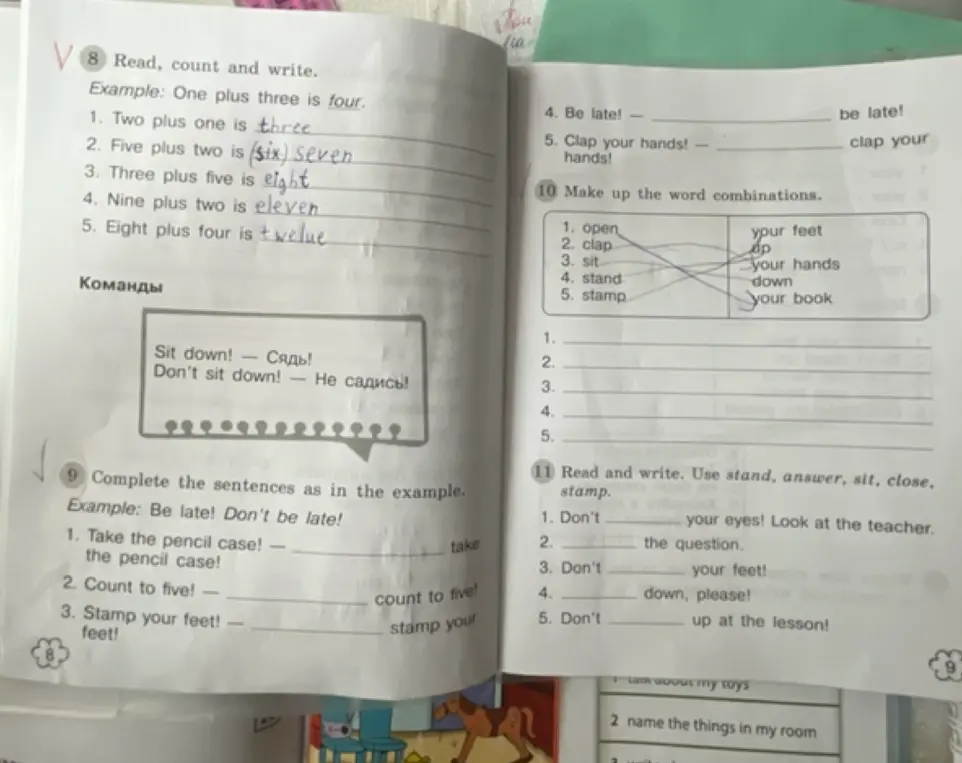 8 Read, count and write.
Example: One plus three is four.
1. Two plus one is three
2. Five plus two is (six) seven
3. Three plus five is eight
4. Nine plus two is eleven
5. Eight plus four is twelue
Команды
Sit down! — Сядь!
Don't sit down! — Не садись!
9 Complete the sentences as in the example.
Example: Be late! Don't be late!
1. Take the pencil case! — ____ take
the pencil case!
2. Count to five! — ____ count to five!
3. Stamp your feet! — ____ stamp your
feet!
8
4. Be late! — ____ be late!
5. Clap your hands! — ____ clap your
hands!
10 Make up the word combinations.
1. open your feet
2. clap up
3. sit your hands
4. stand down
5. stamp your book
1.
2.
3.
4.
5.
11 Read and write. Use stand, answer, sit, close,
stamp.
1. Don't ____ your eyes! Look at the teacher.
2. ____ the question.
3. Don't ____ your feet!
4. ____ down, please!
5. Don't ____ up at the lesson!
9
talk about my toys
2 name the things in my room